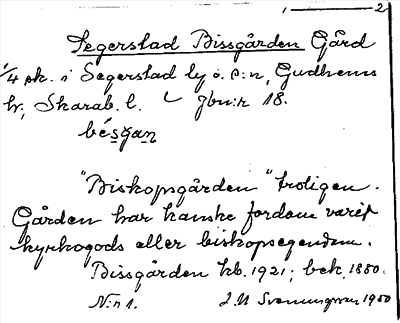 1 — 2
Segerstad Bissgården Gård
1/4 sk. i Segerstad by o. s:n, Gudhems
hr, Skarab. l. Jbn:r 18.
bésgan
"Biskopsgården" troligen.
Gården har kanske fordom varit
kyrkogods eller biskopsegendom.
Bissgården kb. 1921; bek. 1880.
N:r 1. J. M Svenungsson 1950